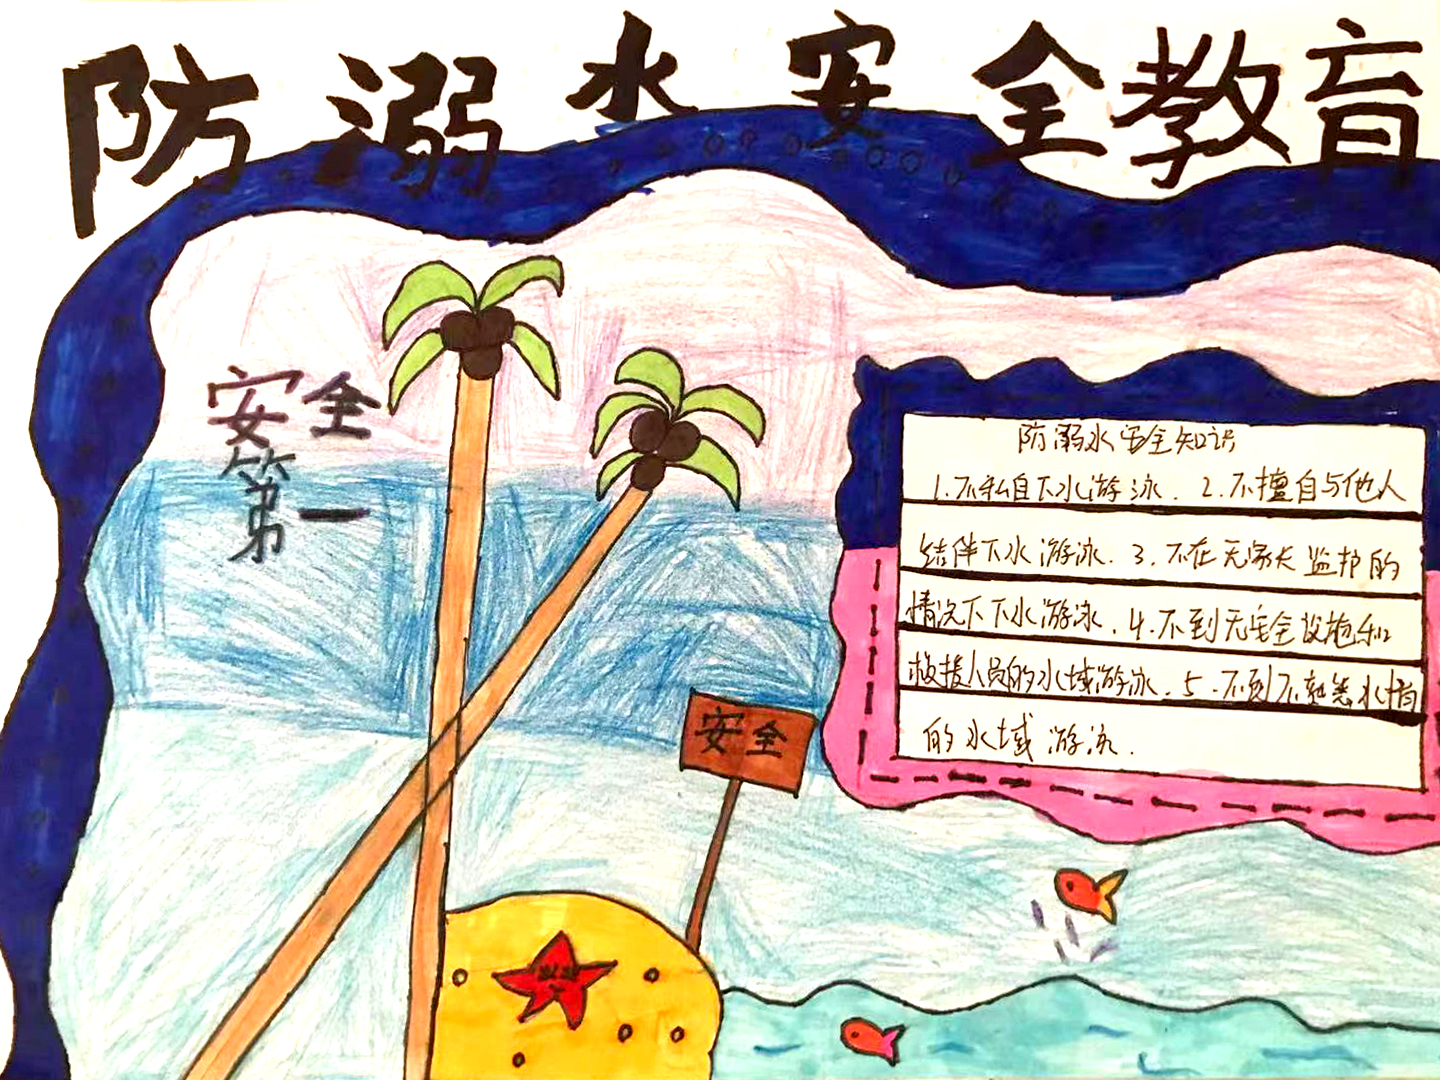 防溺水安全教育
安全
第一
安全
防溺水安全知识
1.不私自下水游泳.2.不擅自与他人
结伴下水游泳.3.不在无家长监护的
情况下下水游泳.4.不到无安全设施和
救援人员的水域游泳.5.不到不熟悉水情
的水域游泳.